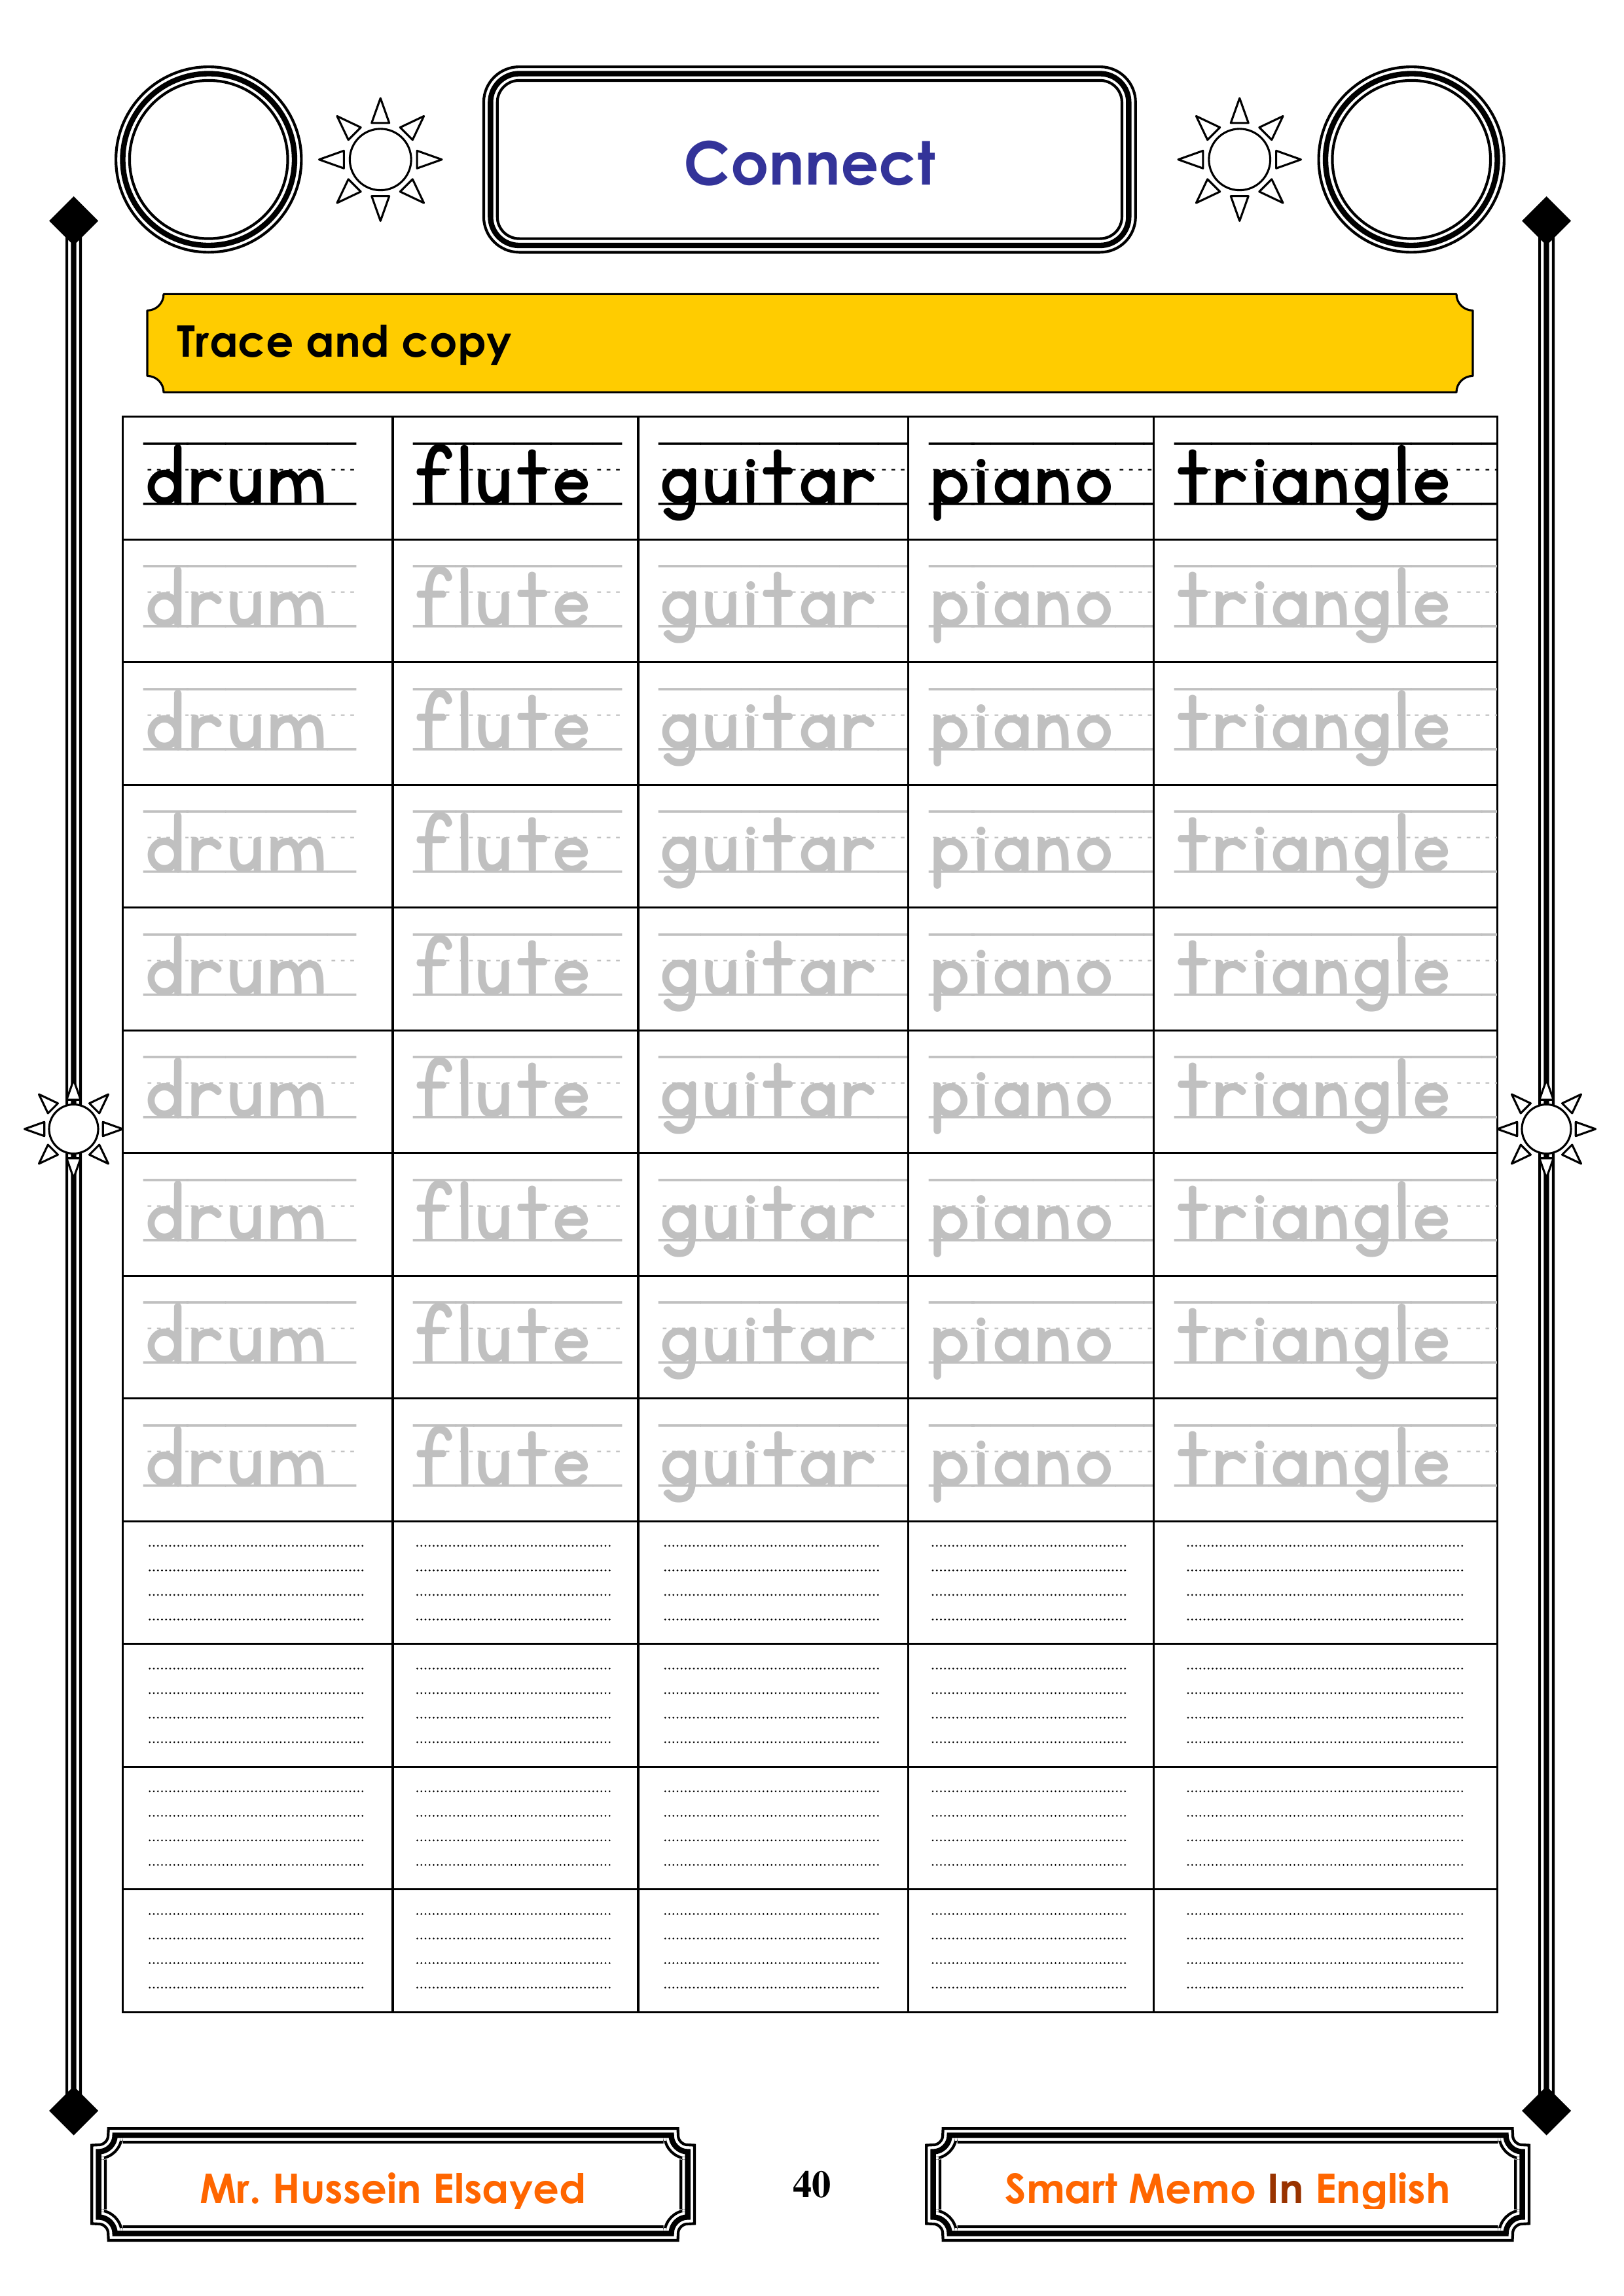 Connect
Trace and copy
drum flute guitar piano triangle
drum flute guitar piano triangle
drum flute guitar piano triangle
drum flute guitar piano triangle
drum flute guitar piano triangle
drum flute guitar piano triangle
drum flute guitar piano triangle
drum flute guitar piano triangle
drum flute guitar piano triangle
Mr. Hussein Elsayed 40 Smart Memo In English